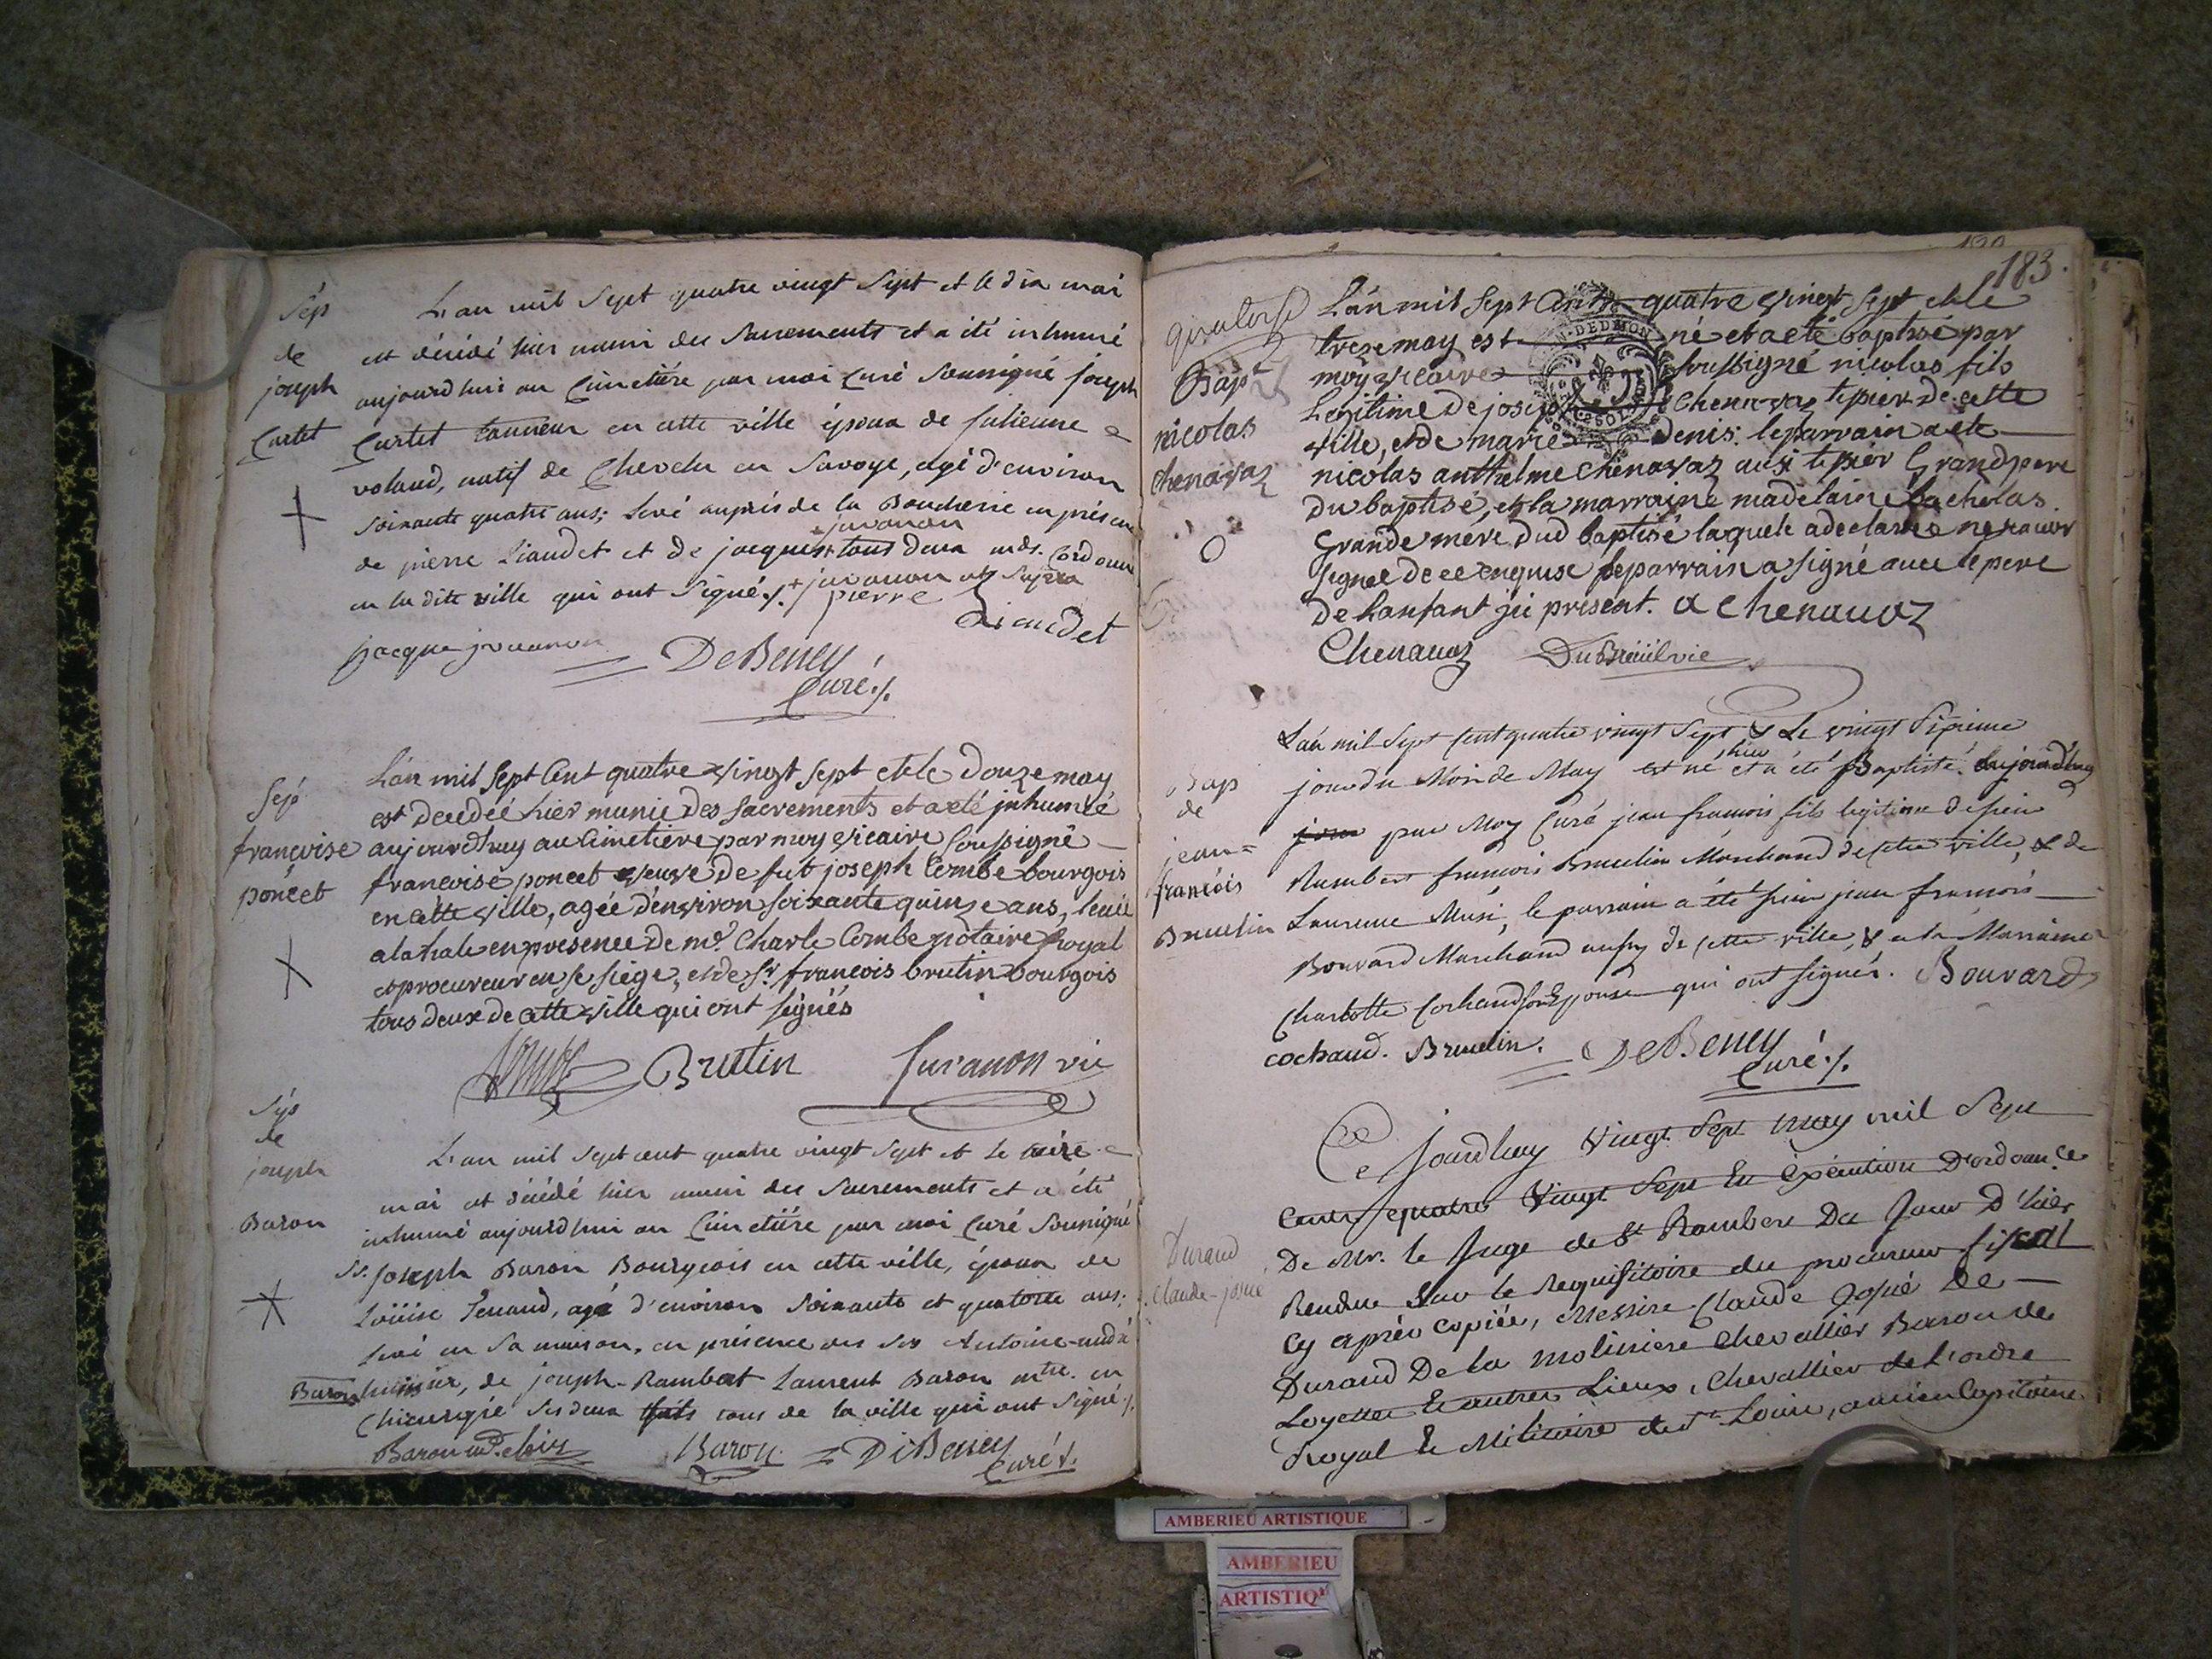 Sép
de
joseph
Curtet
L'an mil Sept quatre vingt Sept et le dix mai
est décédé hier muni des Sacrements et a été inhumé
aujourd'hui au Cimetiére par moi Curé Soussigné joseph
Curtet tanneur en cette ville époux de julienne
voland, natif de Chevelu en Savoye, agé d'environ
soixante quatre ans; levé auprés de la Boucherie en présence
juvanon
de pierre Liaudet et de jacques + tous deux mds. Cordoniers
en la dite ville qui ont Signé ./. + juvanon
pierre
Liaudet
jacque juvanon
DeBeney
Curé ./.
Sep
françoise
poncet
L'an mil Sept Cent quatre vingt Sept et le douze may
est decedée hier munie des Sacrements et a eté jnhumée
aujourdhuy au Cimetière par moy vicaire Soussigné
francoise poncet veuve de fut joseph Combe bourgois
en cette ville, agée d'environ soixante quinze ans, levée
a la hale en presence de me. Charle Combe notaire Royal
et procureur en se siége, et de Sr. francois brutin bourgois
tous deux de cette ville qui ont signés
Brutin
Juvanon vic
Sép
de
joseph
Baron
L'an mil Sept cent quatre vingt Sept et le
mai est décédé hier muni des Sacrements et a été
inhumé aujourd'hui au Cimetiére par moi Curé Soussigné
Sr. joseph Baron Bourgeois en cette ville, époux de
Loüise tenand, agé d'environ Soixante et quatorze ans;
levé en Sa maison, en présence des Srs Antoine-andré
Baron huissier, de joseph-Rambert Laurent Baron mtre. en
Chirurgie Ses deux fils tous de la ville qui ont Signé ./.
Baron
Baron
DeBeney
Curé ./.
183.
quatorse
Bapt
nicolas
chenavaz
L'an mil Sept Cent quatre vingt Sept et le
treze may est né et a eté baptisé par
moy vicaire soussigné nicolas fils
Legitime de joseph Chenavaz tepier de cette
ville, et de marie denis: le parrain a ete
nicolas anthelme chenavaz ausi tepier Grand pere
du baptisé, et la marraine madelaine bachelas
Grande mere dud baptisé laquele a declarée ne savoir
signer de ce enquise le parrain a signé avec le pere
de l'anfant ici present. a chenavaz
Chenavaz
DuBreüil vic
Bap
de
jean=
francois
Bruelin
L'an mil Sept Cent quatre vingt Sept & Le vingt Sixieme
hier
jour du Mois de May est né et a été Baptisé aujourd'huy
par Moy Curé jean francois fils legitime de Sieur
Rambert francois Bruelin Marchand de cette ville, & de
Laurence Musi, le parrain a été Sieur jean francois
Bouvard Marchand aussy de cette ville, & a la Marraine
Charlotte Cochaud son Epouse qui ont signés. Bouvard
cochaud. Bruelin.
DeBeney
Curé ./.
Durand
Claude-josué
Ce Jourdhuy Vingt Sept may mil Sept
Cent quatre Vingt Sept En Exécution D'ordoance
De Mr. le Juge de St Rambert Du Jour D'hier
Rendue Sur le Requisitoire du procureur fiscal
Cy après copiée, Messire Claude Josué De
Durand De la Moliniere Chevallier Baron de
Loyettes & autres Lieux, Chevallier de L'ordre
Royal & Militaire de St Louis, ancien Capitaine
AMBERIEU ARTISTIQUE
AMBERIEU
ARTISTIQ